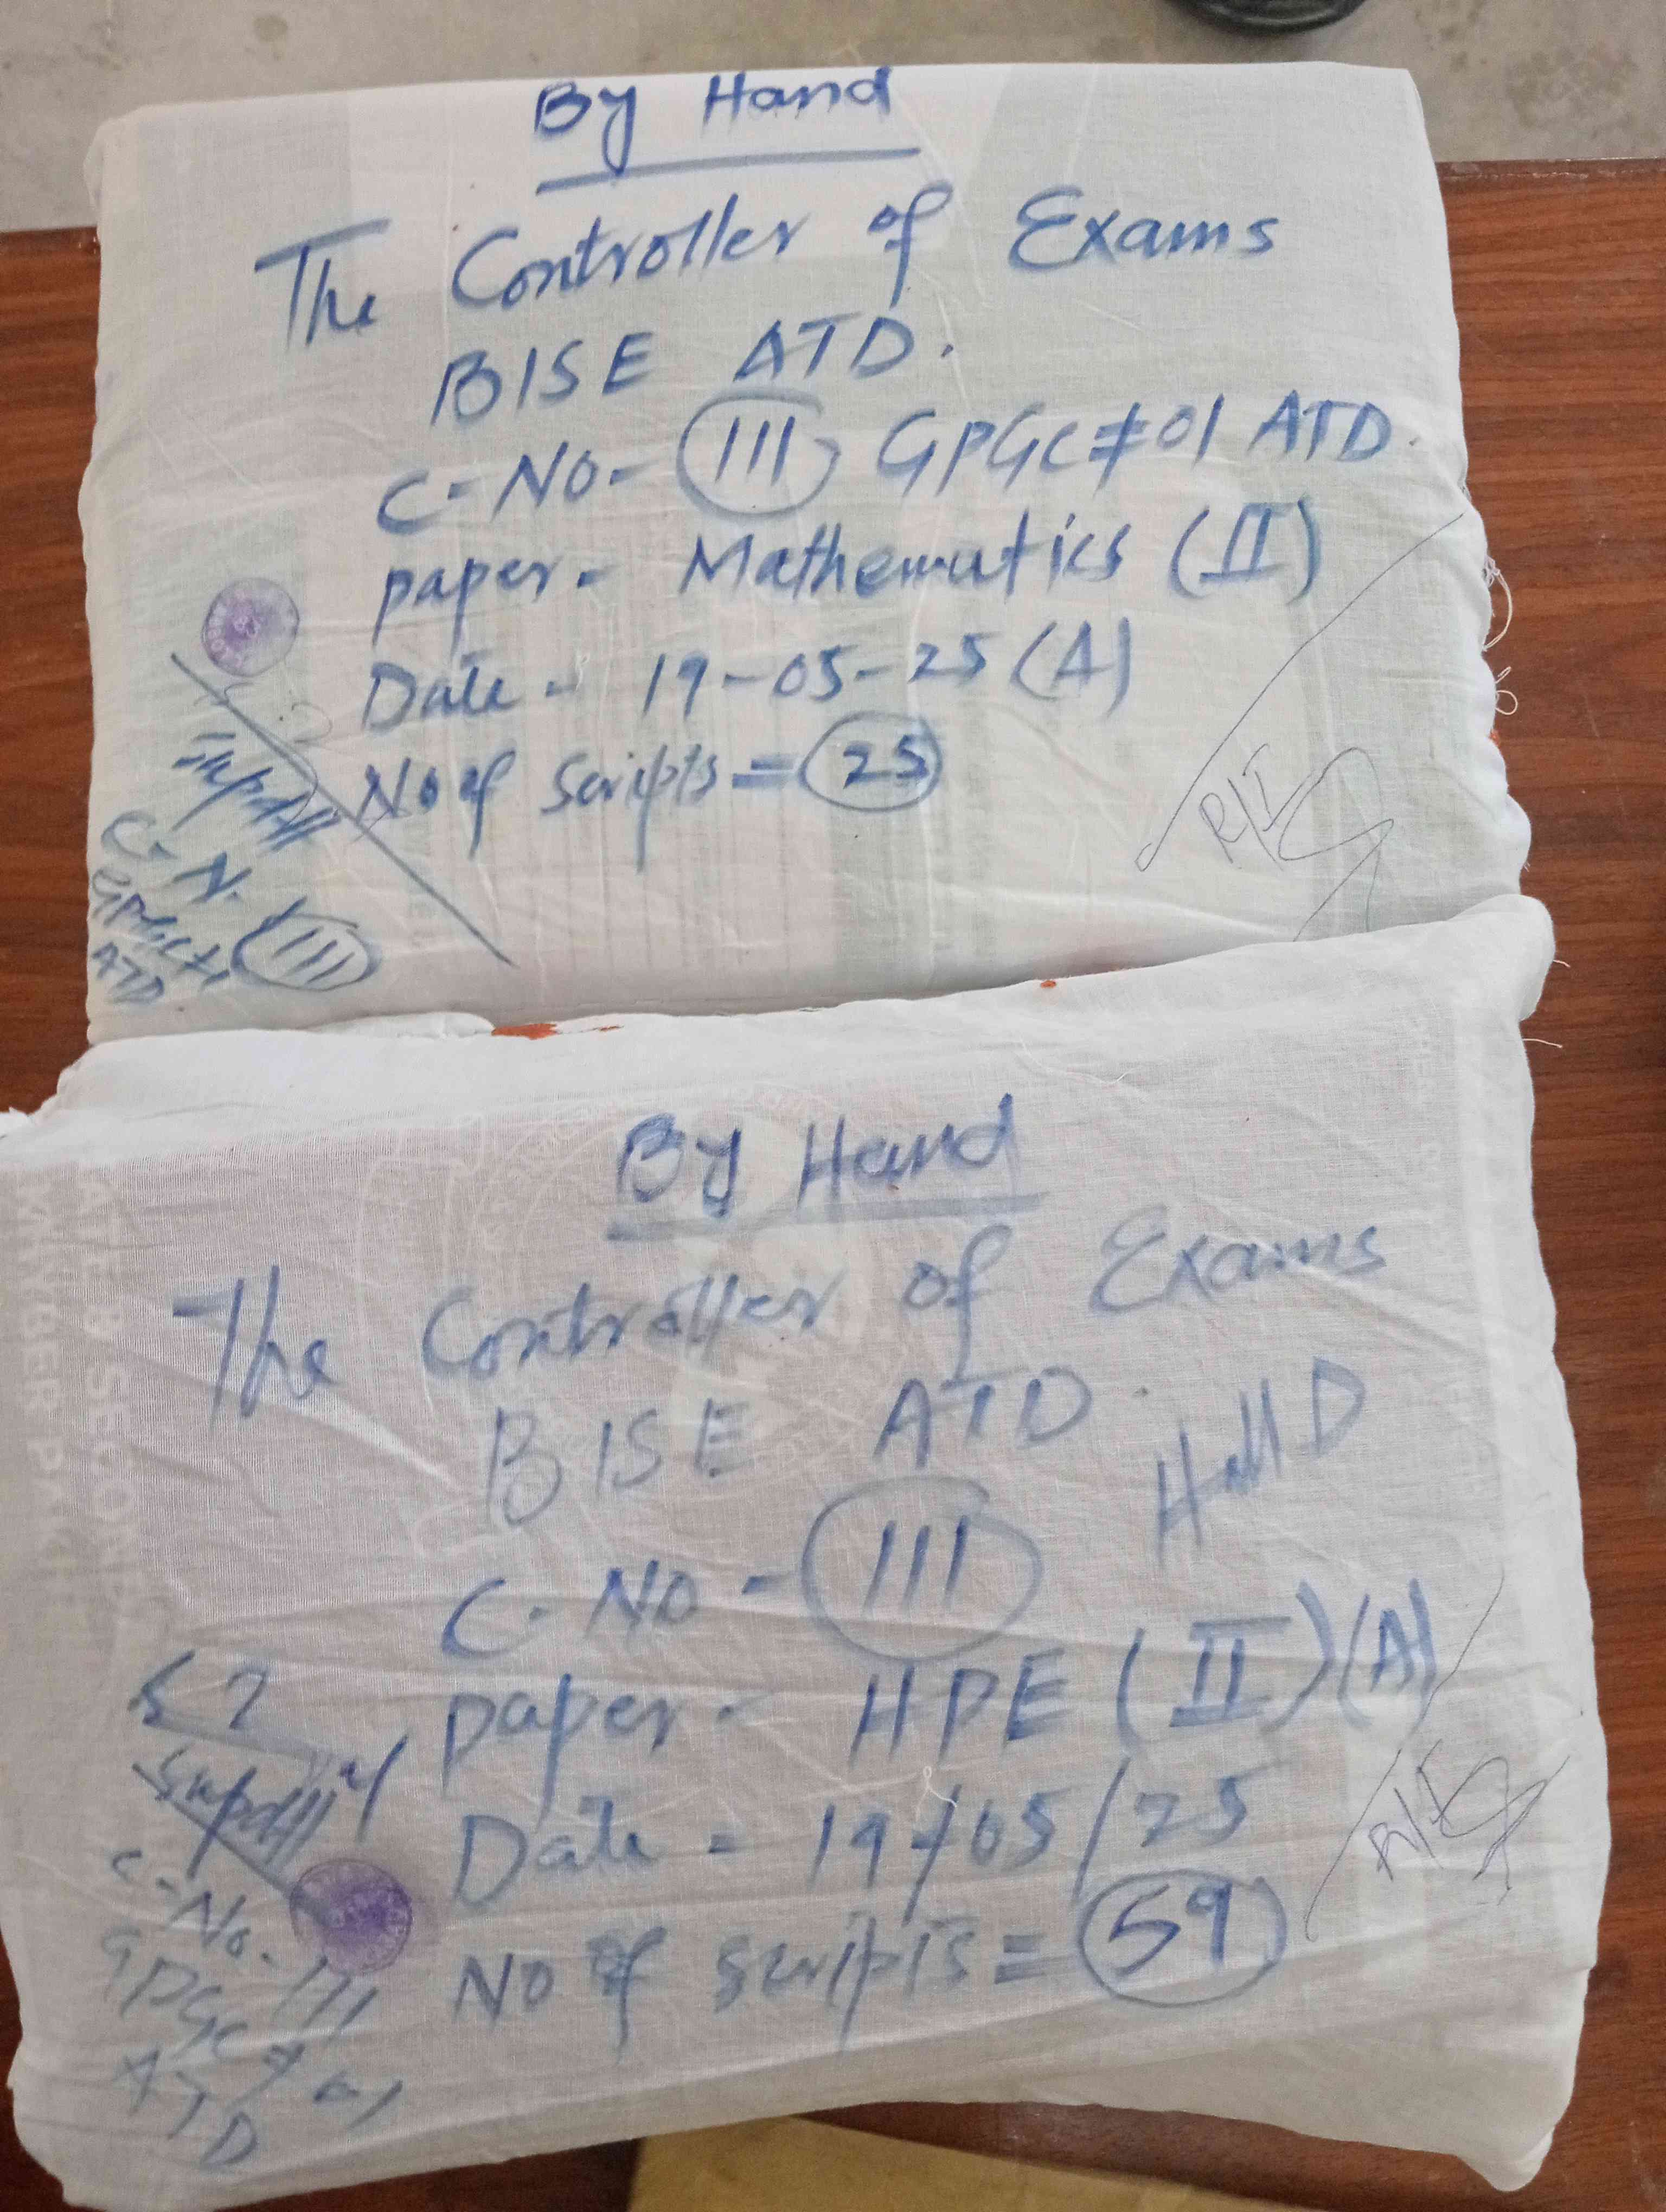 By Hand
The Controller of Exams
BISE ATD.
C-NO- 111 GPGC≠01 ATD.
paper- Mathematics (II)
Date - 19-05-25 (A)
No of Scripts = 25
Supdtt
C-N. 111
GPGC≠1
ATD
R/I
By Hand
The Controller of Exams
BISE ATD.
Hall D
C-NO - 111
paper - HPE (II) (A)
Date - 19/05/25
No of scripts = 59
Supdtt
C-No. 111
GPGC≠01
ATD
R/I